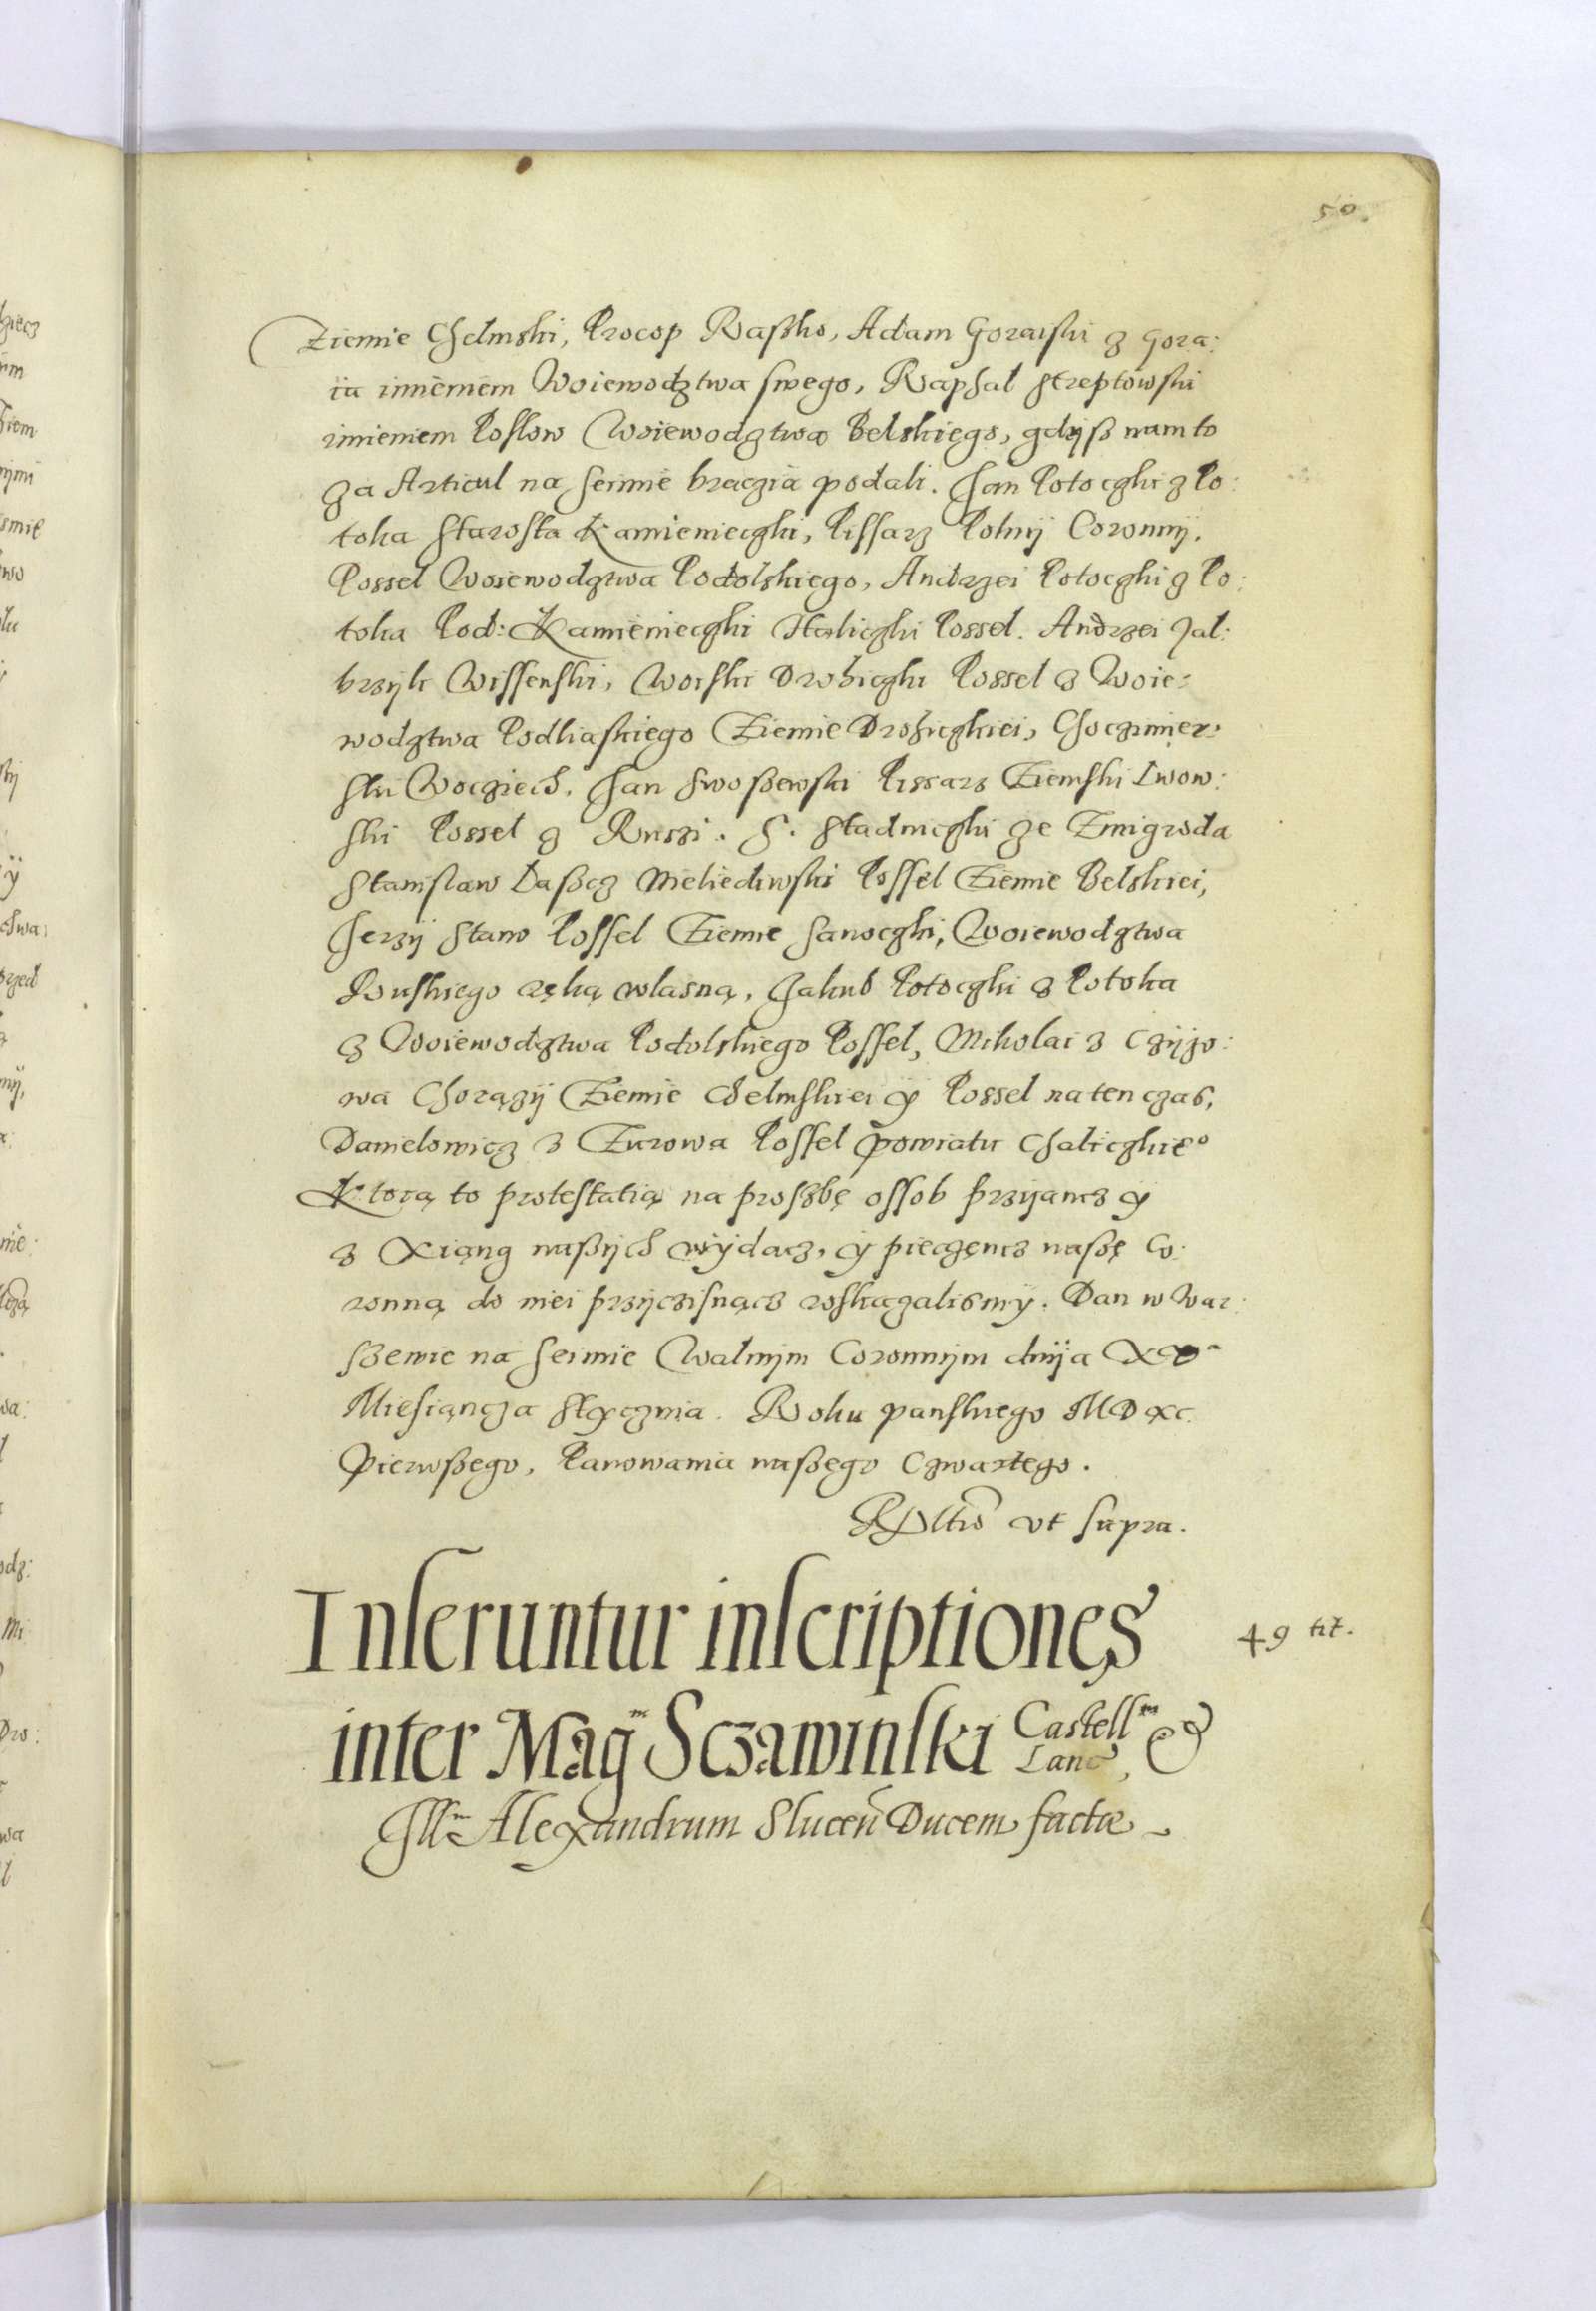 50.
Ziemie Chelmski, Procop Raßko, Adam Goraiski z Gora:
ia inieniem Woiewodztwa swego, Raphal Strzeptowski
imieniem Posłow Woiewodztwa Belskiego, gdyß nam to
za Articul na seimie braczia podali. Jan Potoczki z Po:
toka Starosta Kamienieczki, Pissarz Polny Coronny,
Possel Woiewodztwa Podolskiego, Andrzei Potoczki z Po:
toka Pod: Kamienieczki Haliczki Possel. Andrzei Jal:
brzyk Wissenski, Woiski Drohiczki Possel z Woie:
wodztwa Podliaskiego Ziemie Drohiczkiei, Choczimier:
ski Wocziech, Jan Swoßewski Pissarz Ziemski Lwow:
ski Possel z Russi. S. Stadniczki ze Zmigroda
Stanislaw Laßcz Possel Ziemie Belskiei,
Jerzy Stano Possel Ziemie Sanoczki, Woiewodztwa
Ruskiego ręką wlasną, Jakub Potoczki z Potoka
z Woiewodztwa Podolskiego Possel, Mikolai z Czyżo:
wa Chorązy Ziemie Chelmskiei y Possel na ten czas,
Danielowicz z Zurowa Possel Powiatu Chaliczkieo
Ktorą to protestatią na proszbę ossob przyancz y
z Xiąng naßych wydacz, y pieczęncz naßę Co:
ronną do niei przyczisnącz roskazalismy. Dan w War:
szewie na seimie Walnym Coronnym dnya XXo
Miesiąncza Stycznia. Roku panskiego MDXC.
Pierwßego, Panowania naßego Czwartego.
Rltio vt supra.
Inseruntur inscriptiones
49 tit.
inter Magm Sczawinski Castellm Lanc, &
Illm Alexandrum Slucen Ducem factæ